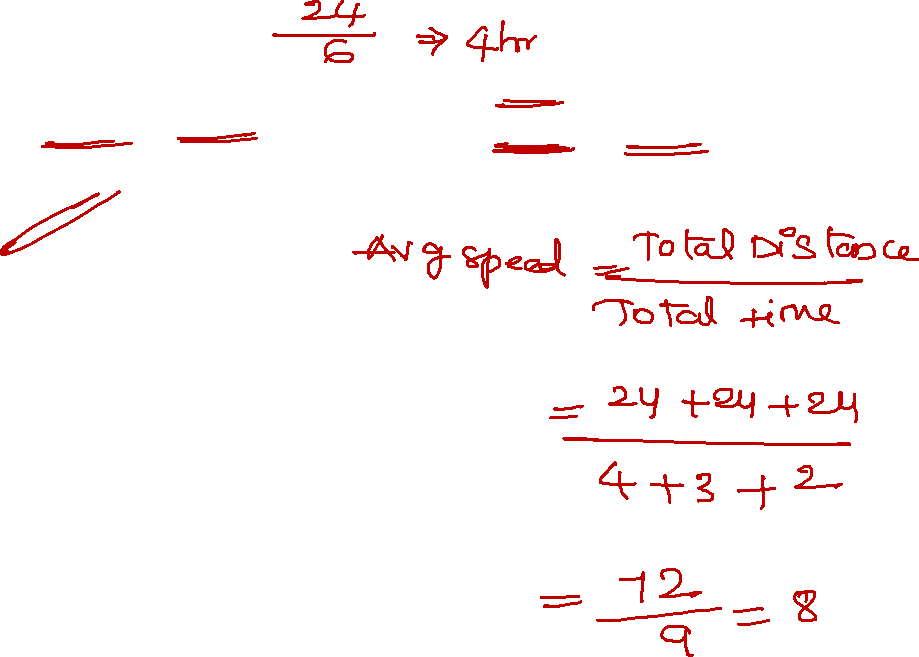 24/6 ⇒ 4hr
Avg speed = Total Distance / Total time
= 24 + 24 + 24 / 4 + 3 + 2
= 72/9 = 8